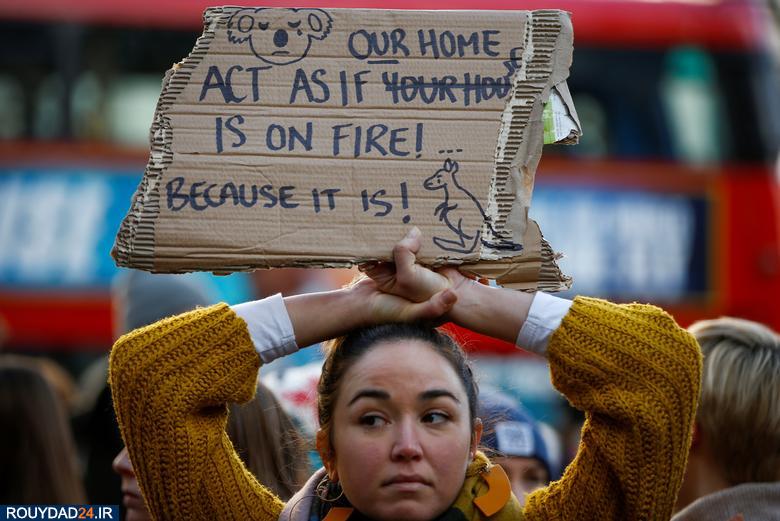 OUR HOME
ACT AS IF YOUR HOU
IS ON FIRE! ...
BECAUSE IT IS!
ROUYDAD24.IR